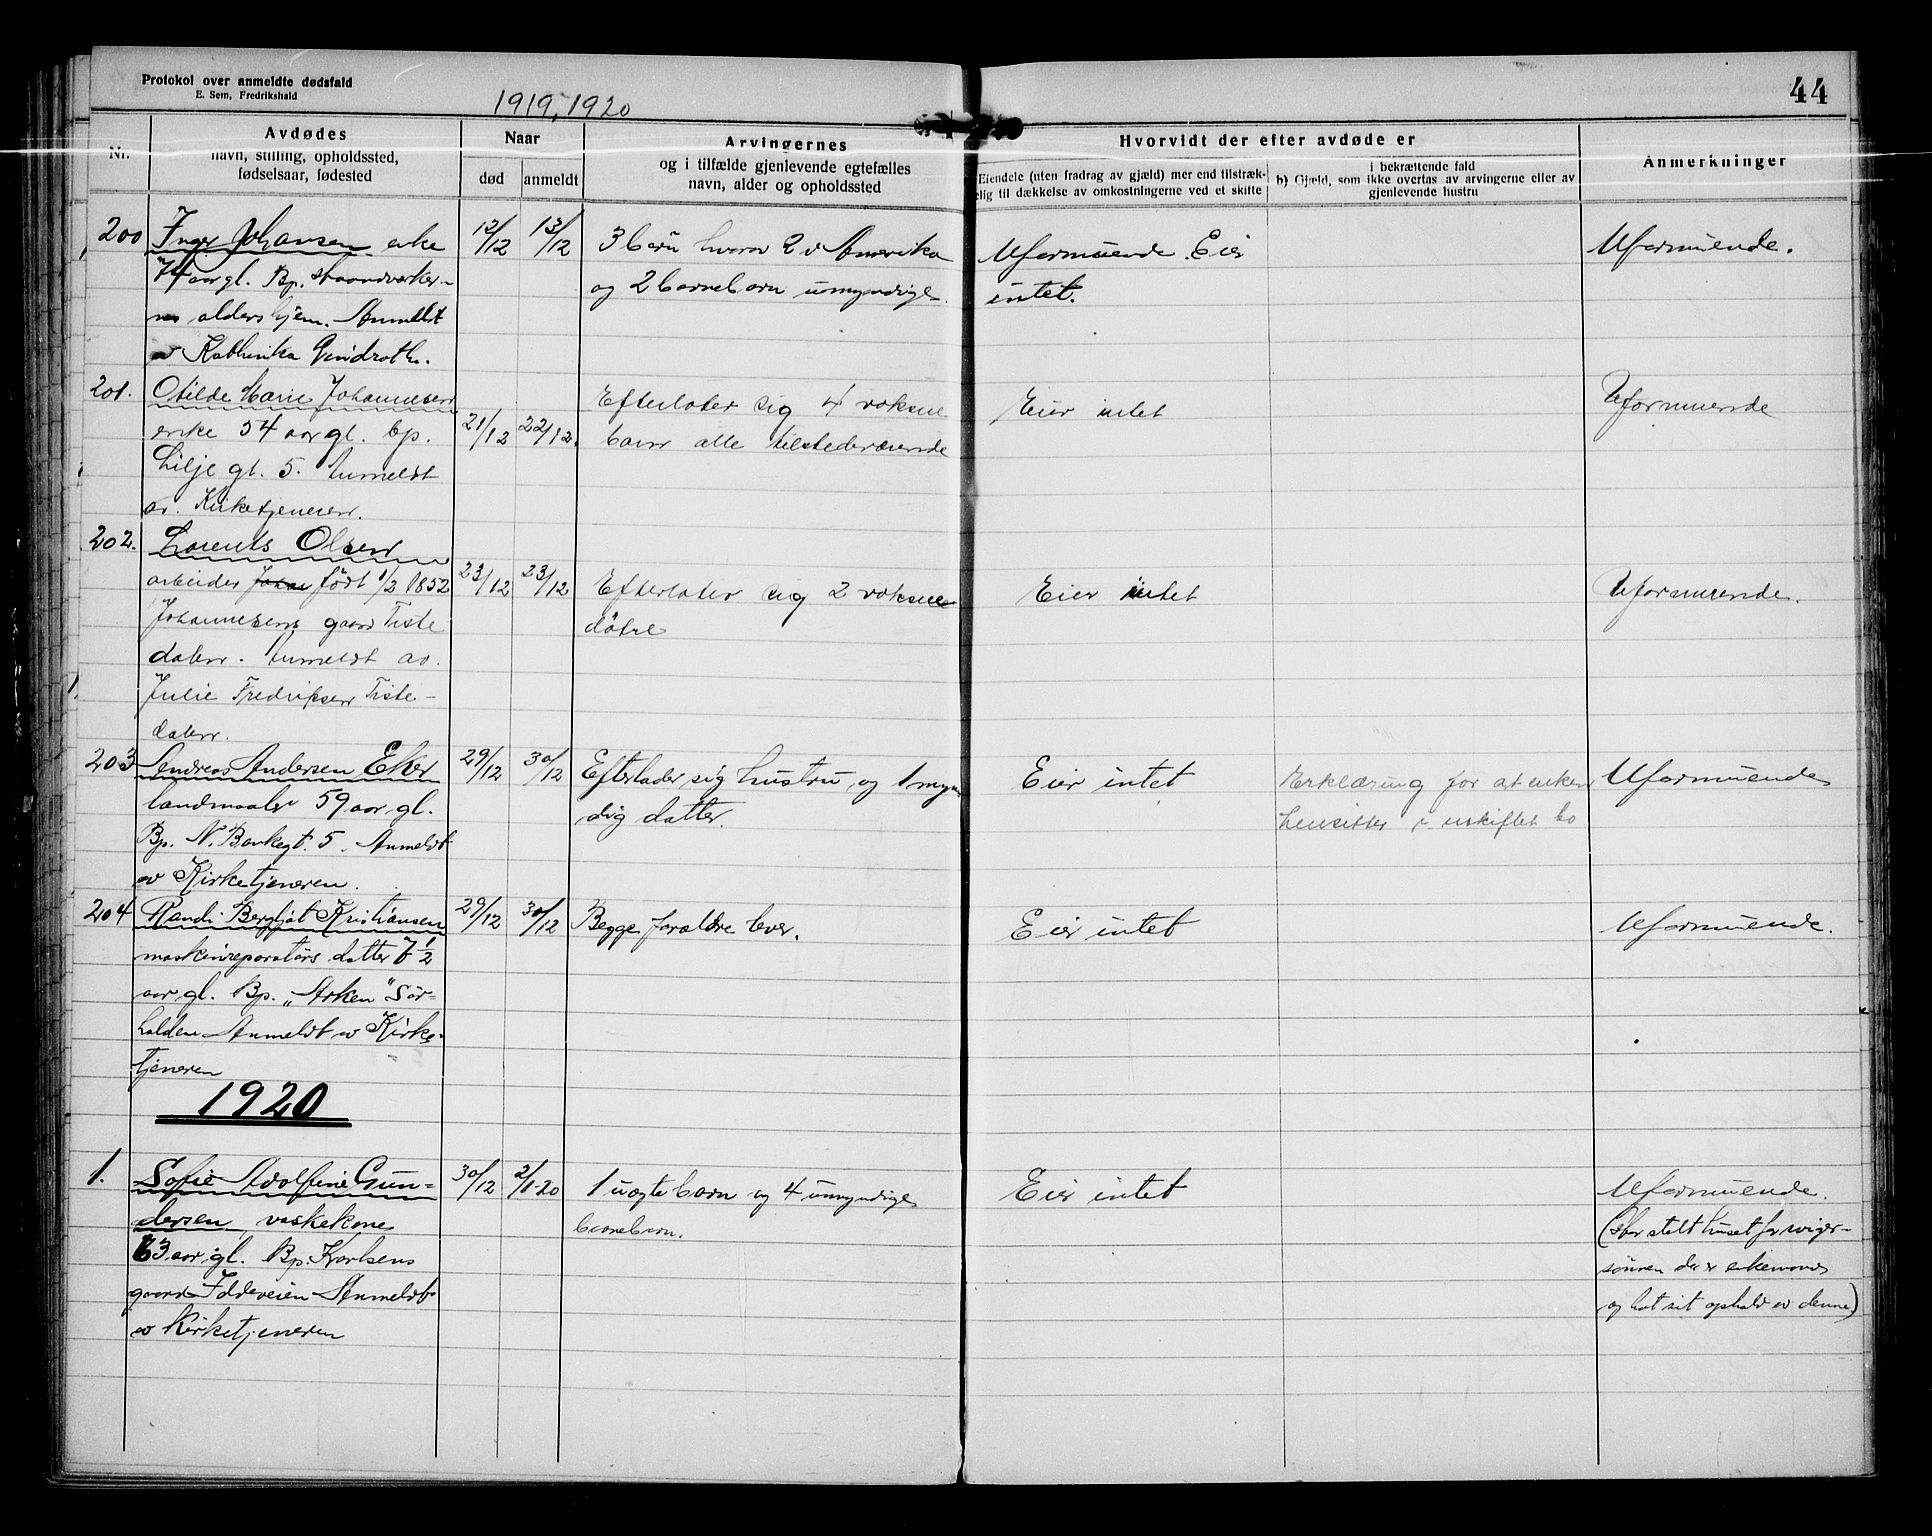 Protokol over anmeldte dødsfald
E. Sem, Fredrikshald
1919, 1920
44
Nr.
Avdødes
navn, stilling, opholdssted,
fødselsaar, fødested
Naar
død
anmeldt
Arvingernes
og i tilfælde gjenlevende egtefælles
navn, alder og opholdssted
Hvorvidt der efter avdøde er
Eiendele (uten fradrag av gjæld) mer end tilstræk-
elig til dækkelse av omkostningerne ved et skifte
i bekræftende fald
b) Gjæld, som ikke overtas av arvingerne eller av
gjenlevende hustru
Anmerkninger
200
Inger Johansen enke
74 aar gl. Bp. Haandverker-
nes aldershjem. Anmeldt
av Kathinka
12/12
13/12
3 barn hvorav 2 i Amerika
og 2 barnebarn umyndige.
Uformuende. Eier
intet.
Uformuende.
201.
Otilde Marie Johannesen
enke 54 aar gl. bp.
Lilje gt. 5. Anmeldt
av. Kirketjeneren.
21/12
22/12.
Efterlater sig 4 voksne
barn alle tilstedeværende
Eier intet
Uformuende
202.
Lorents Olsen
arbeider født 1/2 1852
Johannesens gaard Tiste
dalen. Anmeldt av.
Julie Fredriksen Tiste-
dalen.
23/12
23/12
Efterlater sig 2 voksne
døtre
Eier intet
Uformuende.
203
Andreas Andersen Eker
landmaaler 59 aar gl.
Bp. N. Bankegt. 5. Anmeldt
av Kirketjeneren.
29/12
30/12
Efterlader sig hustru og 1 myn-
dig datter.
Eier intet
Erklæring for at enken
hensitter i uskiftet bo
Uformuende
204
Randi Bergljot Kristiansen
maskinreparatørs datter 7 1/2
aar gl. Bp. "Arken" Sør-
halden Anmeldt av Kirke-
tjeneren
29/12
30/12
Begge forældre lever.
Eier intet
Uformuende.
1920
1.
Sofie Adolfine Gun-
dersen vaskekone
63 aar gl. Bp. Karlsens
gaard Iddeveien Anmeldt
av Kirketjeneren
30/12
2/1-20
1 uegte barn og 4 umyndige
barnebarn.
Eier intet
Uformuende.
(Har stelt huset for sviger-
sønnen der er enkemand
og hat sit ophold av denne)